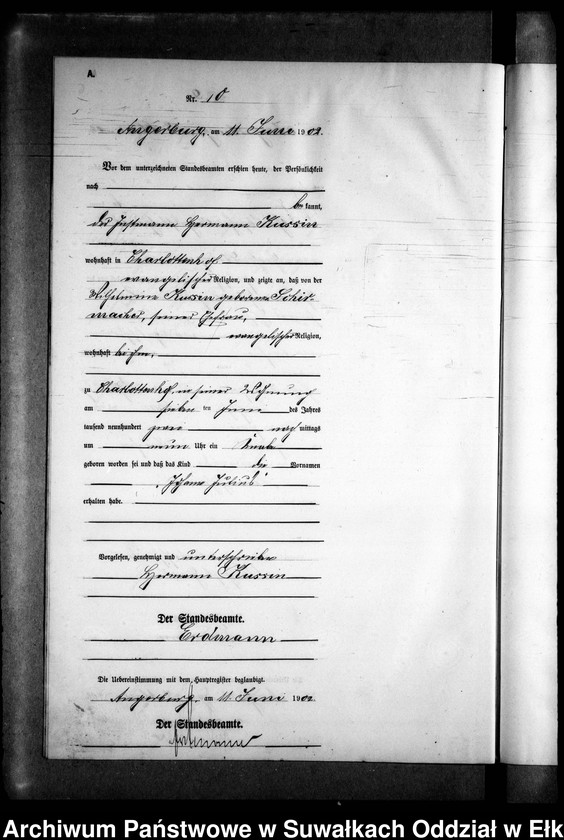 A.
Nr. 10
Angerburg, am 11. Juni 1902.
Vor dem unterzeichneten Standesbeamten erschien heute, der Persönlichkeit
nach
bekannt,
der Instmann Hermann Kussin
wohnhaft in Charlottenhof
evangelischer Religion, und zeigte an, daß von der
Wilhelmine Kussin geborene Schir-
macher, seiner Ehefrau,
evangelischer Religion,
wohnhaft bei ihm,
zu Charlottenhof, in seiner Wohnung
am sieben ten Juni des Jahres
tausend neunhundert zwei nach mittags
um neun Uhr ein Knabe
geboren worden sei und daß das Kind die Vornamen
Julius
erhalten habe.
Vorgelesen, genehmigt und unterschrieben
Hermann Kussin
Der Standesbeamte.
Erdmann
Die Uebereinstimmung mit dem Hauptregister beglaubigt.
Angerburg, am 11. Juni 1902
Der Standesbeamte.
Erdmann
Archiwum Państwowe w Suwałkach Oddział w Ełk